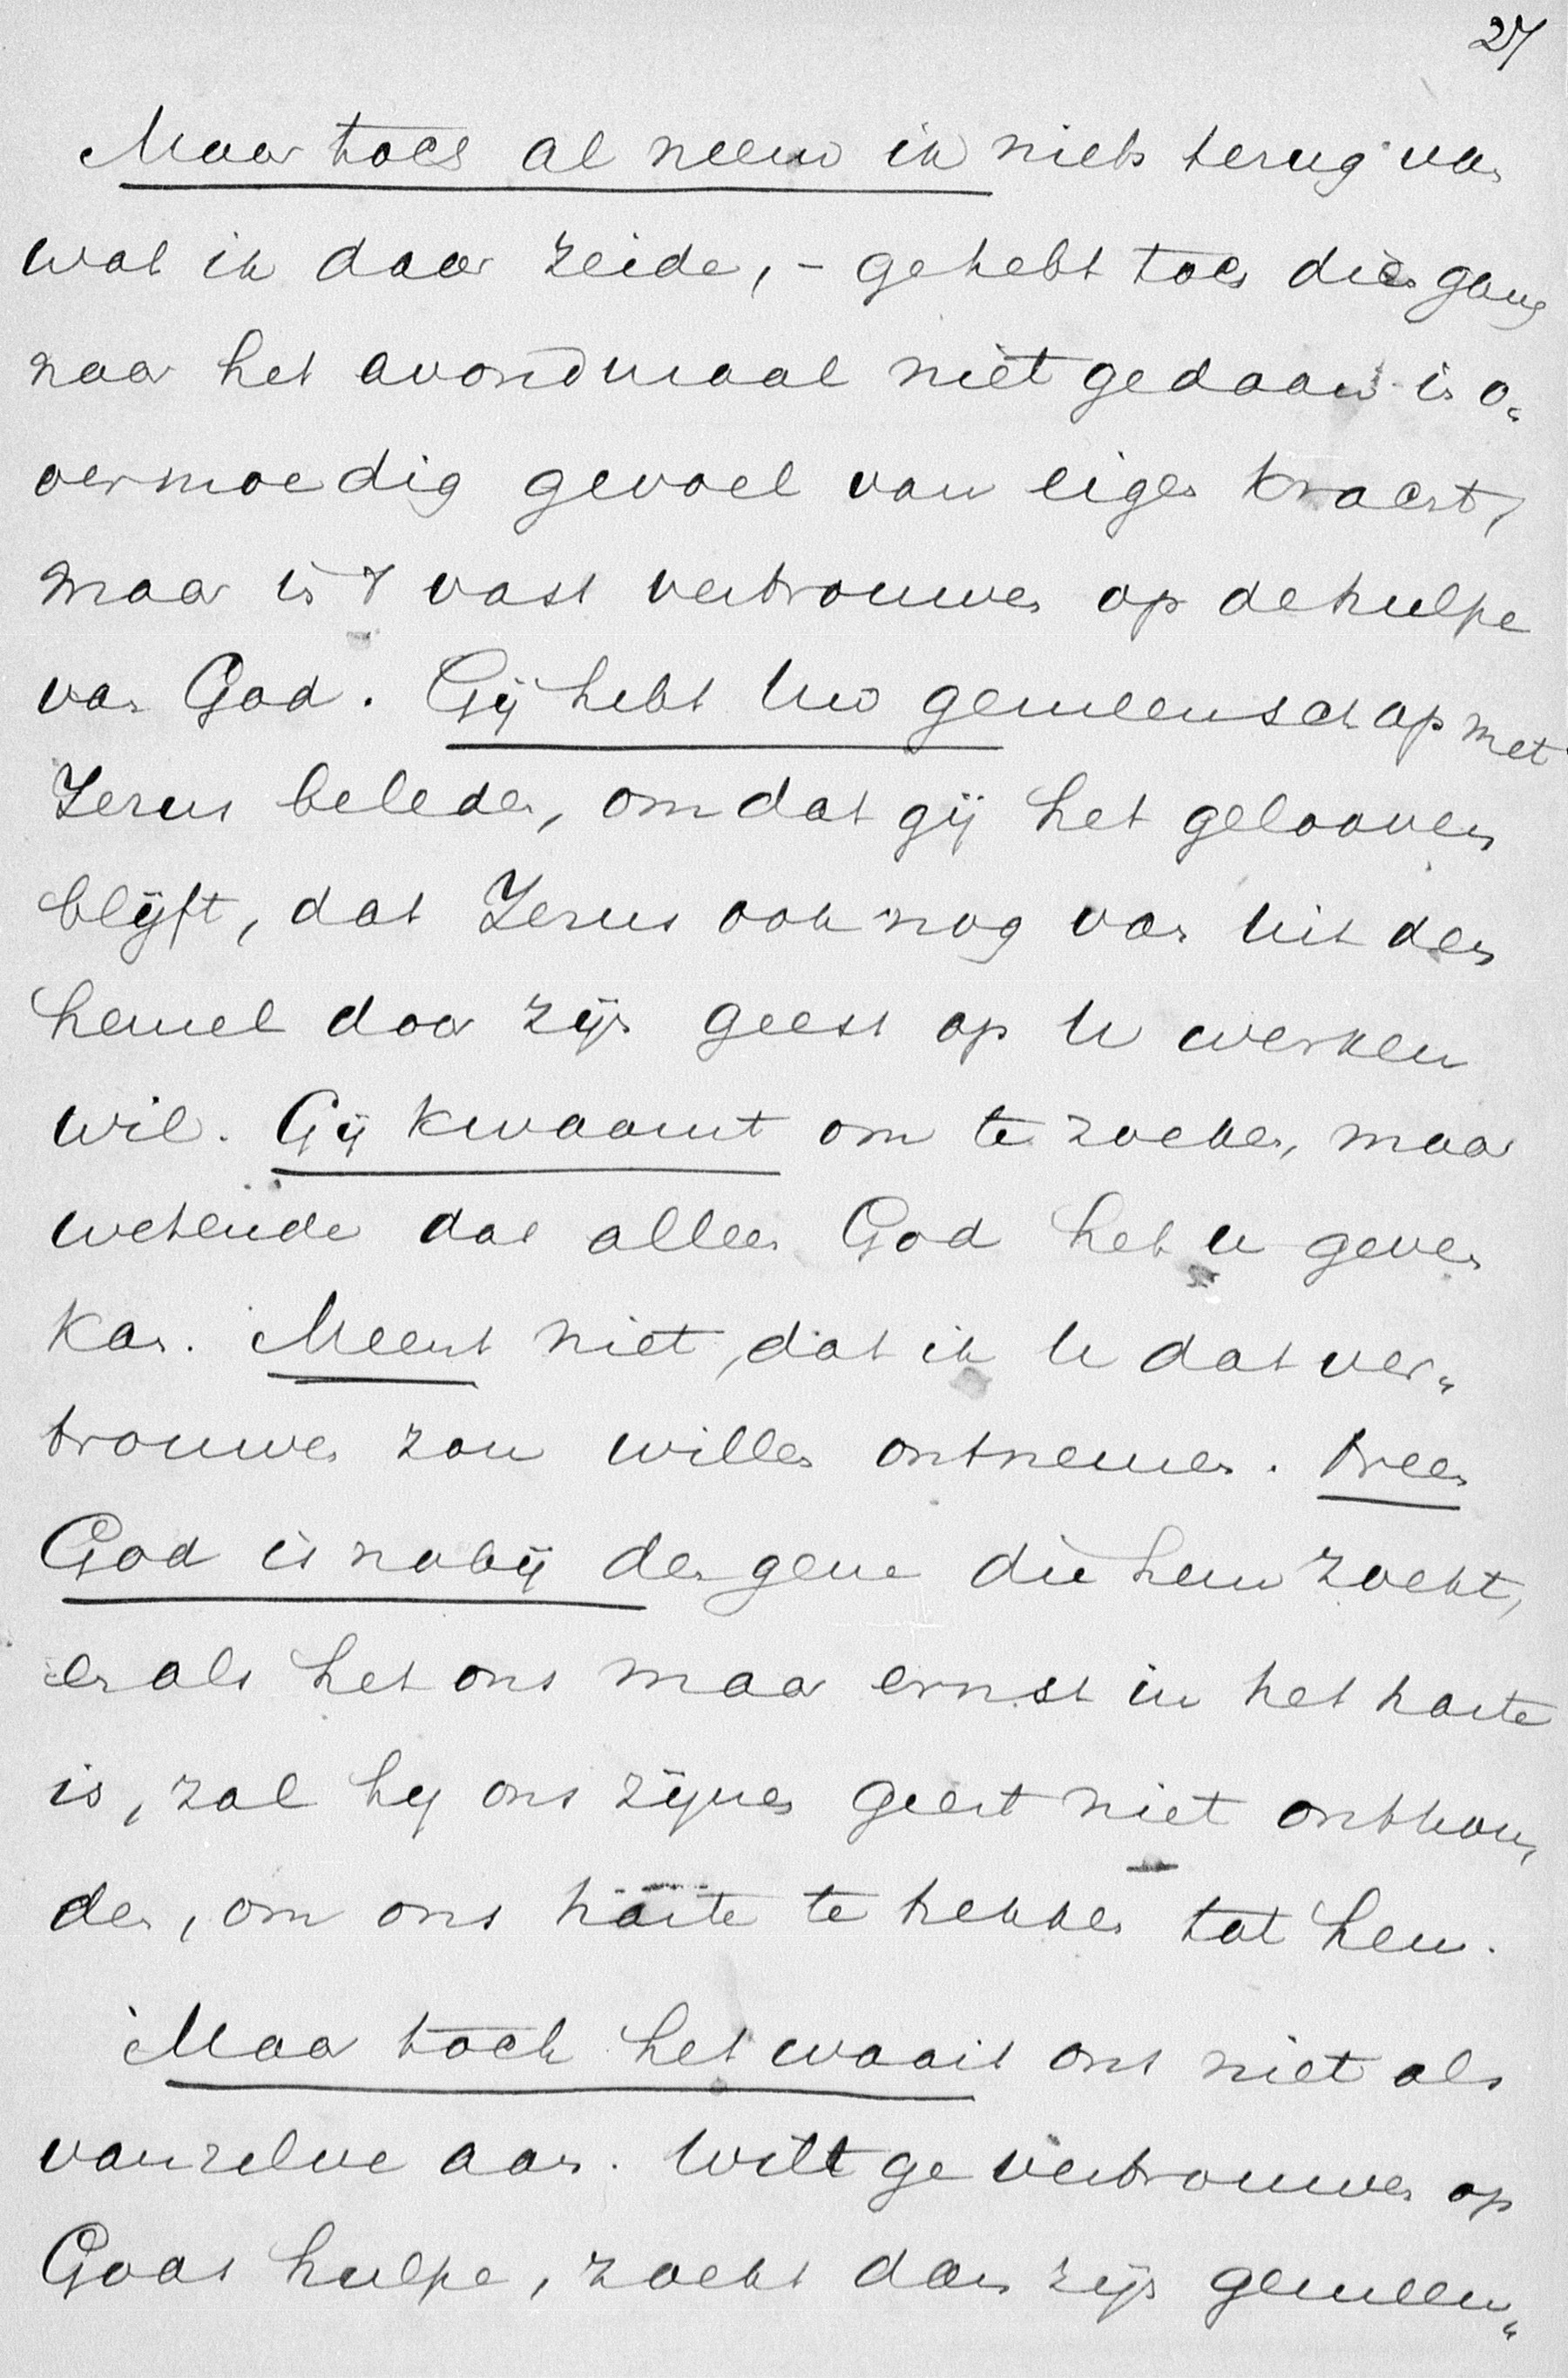 27
Maar toch al neem ik niets terug van
wat ik daar zeide, - ge hebt toch dien gang
naar het avondmaal niet gedaan in o„
vermoedig gevoel van eigen kracht,
maar in 't vast vertrouwen op de hulpe
van God. Gij hebt Uw gemeenschap met
Jezus beleden, omdat gij het gelooven
blijft, dat Jezus ook nog van uit den
hemel door zijn geest op U werken
wil. Gij kwaamt om te zoeken, maar
wetende dat alleen God het u geven
kan. Meent niet, dat ik U dat ver„
trouwen zou willen ontnemen. Neen
God is nabij dengene die hem zoekt,
en als het ons maar ernst in het harte
is, zal hij ons zijnen geest niet onthou„
den, om ons harte te trekken tot hem.
Maar toch het waait ons niet als
vanzelve aan. Wilt ge vertrouwen op
Gods hulpe, zoekt dan zijn gemeen„